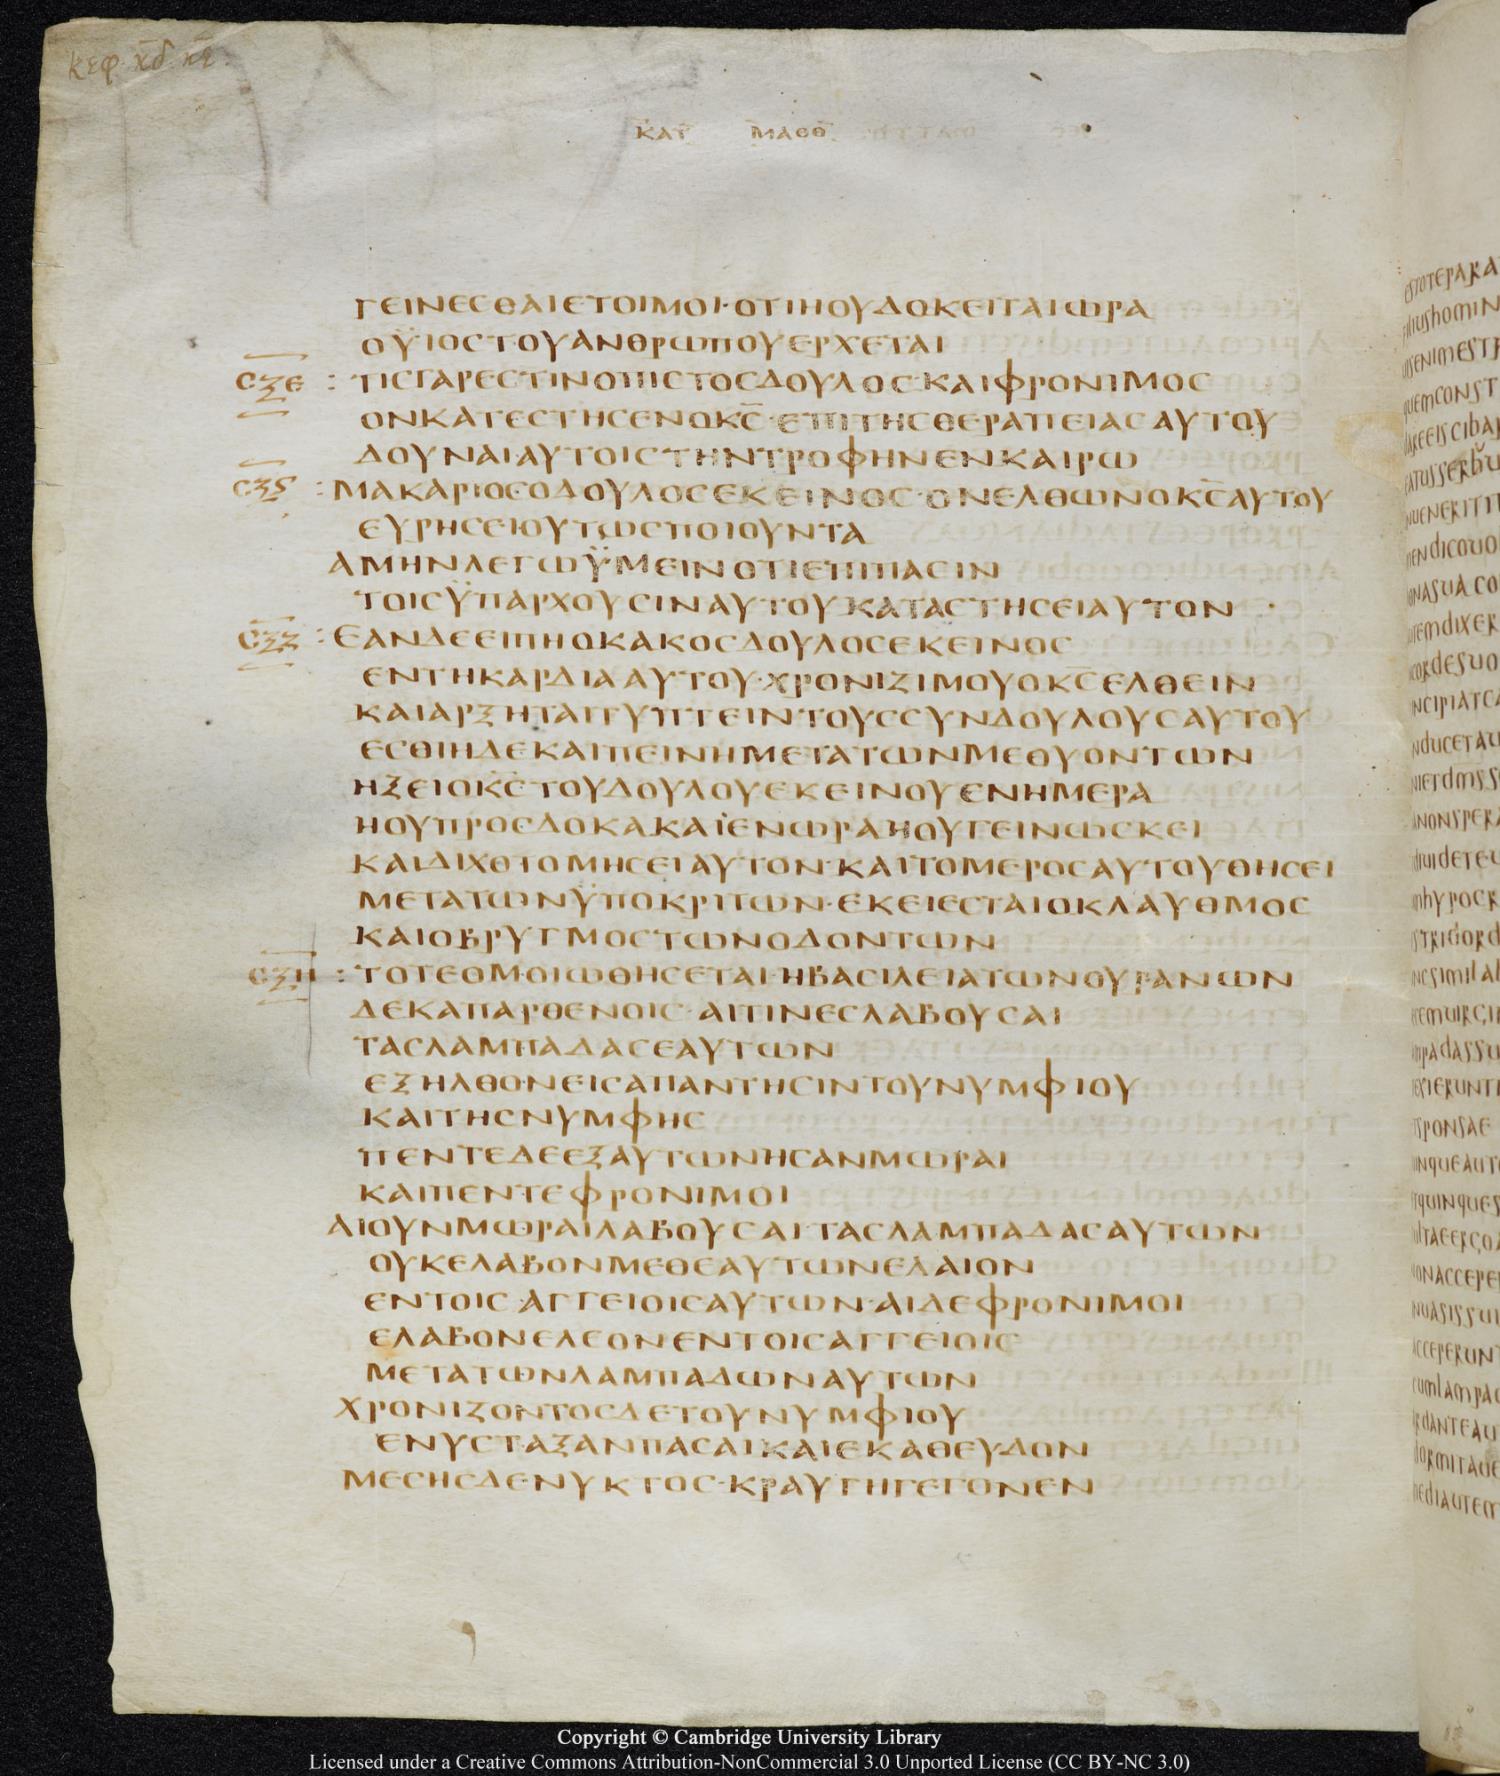 κεφ κδ κε
ΚΑΤ ΜΑΘΘ
ΓΕΙΝΕСΘΑΙΕΤΟΙΜΟΙ·ΟΤΙΗΟΥΔΟΚΕΙΤΑΙωΡΑ
ΟΫΙΟСΤΟΥΑΝΘΡωΠΟΥΕΡΧΕΤΑΙ
СΞΕ : ΤΙСΓΑΡΕСΤΙΝΟΠΙСΤΟСΔΟΥΛΟС·ΚΑΙΦΡΟΝΙΜΟС
ΟΝΚΑΤΕСΤΗСΕΝΟΚ̅С̅·ΕΠΙΤΗСΘΕΡΑΠΕΙΑСΑΥΤΟΥ
ΔΟΥΝΑΙΑΥΤΟΙСΤΗΝΤΡΟΦΗΝΕΝΚΑΙΡω
СΞϚ : ΜΑΚΑΡΙΟСΟΔΟΥΛΟСΕΚΕΙΝΟС·ΟΝΕΛΘωΝΟΚ̅С̅ΑΥΤΟΥ
ΕΥΡΗСΕΙΟΥΤωСΠΟΙΟΥΝΤΑ
ΑΜΗΝΛΕΓωΫΜΕΙΝΟΤΙΕΠΙΠΑСΙΝ
ΤΟΙСΫΠΑΡΧΟΥСΙΝΑΥΤΟΥΚΑΤΑСΤΗСΕΙΑΥΤΟΝ
СΞΖ : ΕΑΝΔΕΕΙΠΗΟΚΑΚΟСΔΟΥΛΟСΕΚΕΙΝΟС
ΕΝΤΗΚΑΡΔΙΑΑΥΤΟΥ·ΧΡΟΝΙΖΙΜΟΥΟΚ̅С̅ΕΛΘΕΙΝ
ΚΑΙΑΡΞΗΤΑΙΤΥΠΤΕΙΝΤΟΥССΥΝΔΟΥΛΟΥСΑΥΤΟΥ
ΕСΘΙΗΔΕΚΑΙΠΕΙΝΗΜΕΤΑΤωΝΜΕΘΥΟΝΤωΝ
ΗΞΕΙΟΚ̅С̅ΤΟΥΔΟΥΛΟΥΕΚΕΙΝΟΥΕΝΗΜΕΡΑ
ΗΟΥΠΡΟСΔΟΚΑΚΑΙΕΝωΡΑΗΟΥΓΕΙΝωСΚΕΙ
ΚΑΙΔΙΧΟΤΟΜΗСΕΙΑΥΤΟΝ·ΚΑΙΤΟΜΕΡΟСΑΥΤΟΥΘΗСΕΙ
ΜΕΤΑΤωΝΫΠΟΚΡΙΤωΝ·ΕΚΕΙΕСΤΑΙΟΚΛΑΥΘΜΟС
ΚΑΙΟΒΡΥΓΜΟСΤωΝΟΔΟΝΤωΝ
СΞΗ : ΤΟΤΕΟΜΟΙωΘΗСΕΤΑΙ·ΗΒΑСΙΛΕΙΑΤωΝΟΥΡΑΝωΝ
ΔΕΚΑΠΑΡΘΕΝΟΙС·ΑΙΤΙΝΕСΛΑΒΟΥСΑΙ
ΤΑСΛΑΜΠΑΔΑСΕΑΥΤωΝ
ΕΞΗΛΘΟΝΕΙСΑΠΑΝΤΗСΙΝΤΟΥΝΥΜΦΙΟΥ
ΚΑΙΤΗСΝΥΜΦΗС
ΠΕΝΤΕΔΕΕΞΑΥΤωΝΗСΑΝΜωΡΑΙ
ΚΑΙΠΕΝΤΕΦΡΟΝΙΜΟΙ
ΑΙΟΥΝΜωΡΑΙΛΑΒΟΥСΑΙ·ΤΑСΛΑΜΠΑΔΑСΑΥΤωΝ
ΟΥΚΕΛΑΒΟΝΜΕΘΕΑΥΤωΝΕΛΑΙΟΝ
ΕΝΤΟΙС·ΑΓΓΕΙΟΙСΑΥΤωΝ·ΑΙΔΕΦΡΟΝΙΜΟΙ
ΕΛΑΒΟΝΕΛΕΟΝΕΝΤΟΙСΑΓΓΕΙΟΙС
ΜΕΤΑΤωΝΛΑΜΠΑΔωΝΑΥΤωΝ
ΧΡΟΝΙΖΟΝΤΟСΔΕΤΟΥΝΥΜΦΙΟΥ
ΕΝΥСΤΑΞΑΝΠΑСΑΙΚΑΙΕΚΑΘΕΥΔΟΝ
ΜΕСΗСΔΕΝΥΚΤΟС·ΚΡΑΥΓΗΓΕΓΟΝΕΝ
Copyright © Cambridge University Library
Licensed under a Creative Commons Attribution-NonCommercial 3.0 Unported License (CC BY-NC 3.0)